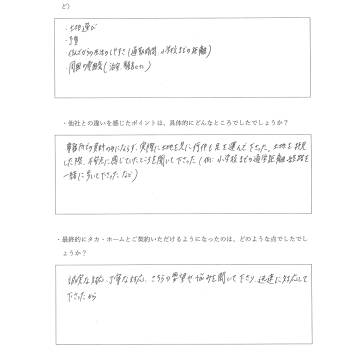 ど）
・土地選び
・予算
・仕事がらの生活のしやすさ（通勤時間、小学校までの距離）
・周囲の環境（治安、騒音etc）
・他社との違いを感じたポイントは、具体的にどんなところでしたでしょうか？
事務所での資料のみにならず、実際に土地を見に何件も足を運んで下さった。土地を視見
した際、不安に感じていたところを聞いて下さった（例：小学校までの通学距離・経路を
一緒に歩いて下さった など）
・最終的にタカ・ホームとご契約いただけるようになったのは、どのような点でしたでし
ょうか？
誠実な対応、丁寧な対応、こちらの要望や悩みを聞いて下さり、迅速に対応して
下さったから